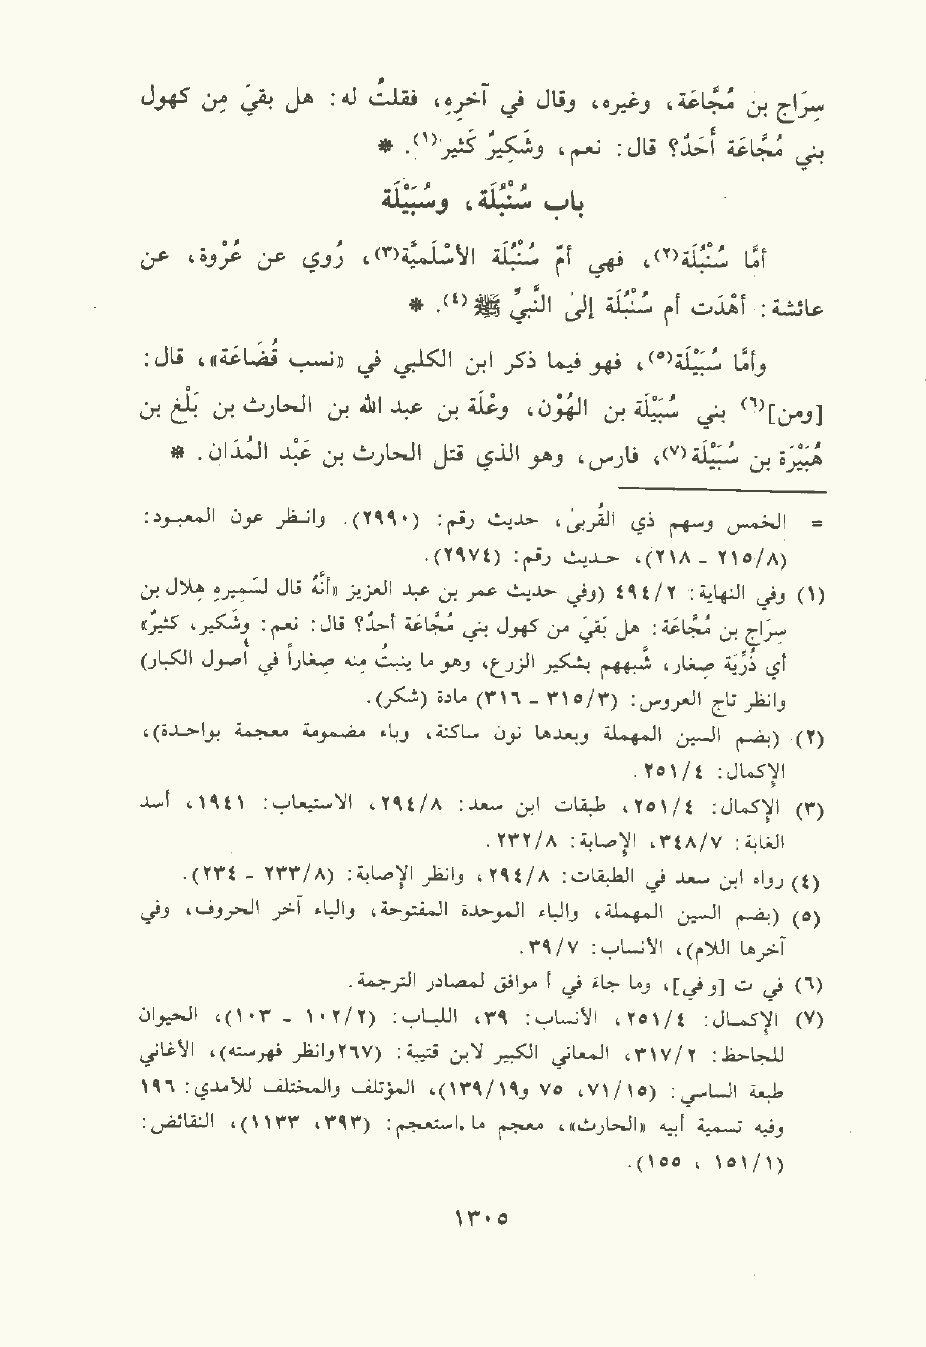 سِرَاج بن مُجَّاعَة، وغيره، وقال في آخرِهِ، فقلتُ له: هل بقيَ مِن كهول
بني مُجَّاعَة أَحَدٌ؟ قال: نعم، وشَكِيرٌ كَثير(١). *
باب سُنْبُلَة، وسُبَيْلَة
أمَّا سُنْبُلَة(٢)، فهي أمّ سُنْبُلَة الأسْلَميَّة(٣)، رُوي عن عُرْوة، عن
عائشة: أَهْدَت أم سُنْبُلَة إلى النَّبيِّ ﷺ(٤). *
وأمَّا سُبَيْلَة(٥)، فهو فيما ذكر ابن الكلبي في «نسب قُضَاعَة»، قال:
[ومن](٦) بني سُبَيْلَة بن الهُوْن، وعْلَة بن عبد الله بن الحارث بن بَلْغ بن
هُبَيْرَة بن سُبَيْلَة(٧)، فارس، وهو الذي قتل الحارث بن عَبْد المُدَان. *
= الخمس وسهم ذي القُربىٰ، حديث رقم: (٢٩٩٠). وانظر عون المعبود:
(٨/٢١٥ - ٢١٨)، حديث رقم: (٢٩٧٤).
(١) وفي النهاية: ٢/ ٤٩٤ (وفي حديث عمر بن عبد العزيز «أنَّهُ قال لسَميرهِ هِلال بن
سِرَاج بن مُجَّاعَة: هل بَقيَ من كهول بني مُجَّاعَة أحدٌ؟ قال: نعم: وشَكير، كثيرٌ»
أي ذُرِّيَة صغار، شَبههم بشكير الزرع، وهو ما ينبتُ مِنه صغاراً في أصول الكبار)
وانظر تاج العروس: (٣/٣١٥ - ٣١٦) مادة (شكر).
(٢) (بضم السين المهملة وبعدها نون ساكنة، وباء مضمومة معجمة بواحدة)،
الإكمال: ٤/ ٢٥١.
(٣) الإكمال: ٤/ ٢٥١، طبقات ابن سعد: ٨/ ٢٩٤، الاستيعاب: ١٩٤١، أسد
الغابة: ٧/ ٣٤٨، الإصابة: ٨/ ٢٣٢.
(٤) رواه ابن سعد في الطبقات: ٨/ ٢٩٤، وانظر الإصابة: (٨/٢٣٣ - ٢٣٤).
(٥) (بضم السين المهملة، والباء الموحدة المفتوحة، والياء آخر الحروف، وفي
آخرها اللام)، الأنساب: ٧/ ٣٩.
(٦) في ت [وفي]، وما جاء في أ موافق لمصادر الترجمة.
(٧) الإكمال: ٤/ ٢٥١، الأنساب: ٣٩، اللباب: (٢/١٠٢ - ١٠٣)، الحيوان
للجاحظ: ٢/ ٣١٧، المعاني الكبير لابن قتيبة: (٢٦٧وانظر فهرسته)، الأغاني
طبعة الساسي: (١٥/ ٧١، ٧٥ و١٩/ ١٣٩)، المؤتلف والمختلف للآمدي: ١٩٦
وفيه تسمية أبيه «الحارث»، معجم ما استعجم: (٣٩٣، ١١٣٣)، النقائض:
(١/ ١٥١ ، ١٥٥).
١٣٠٥